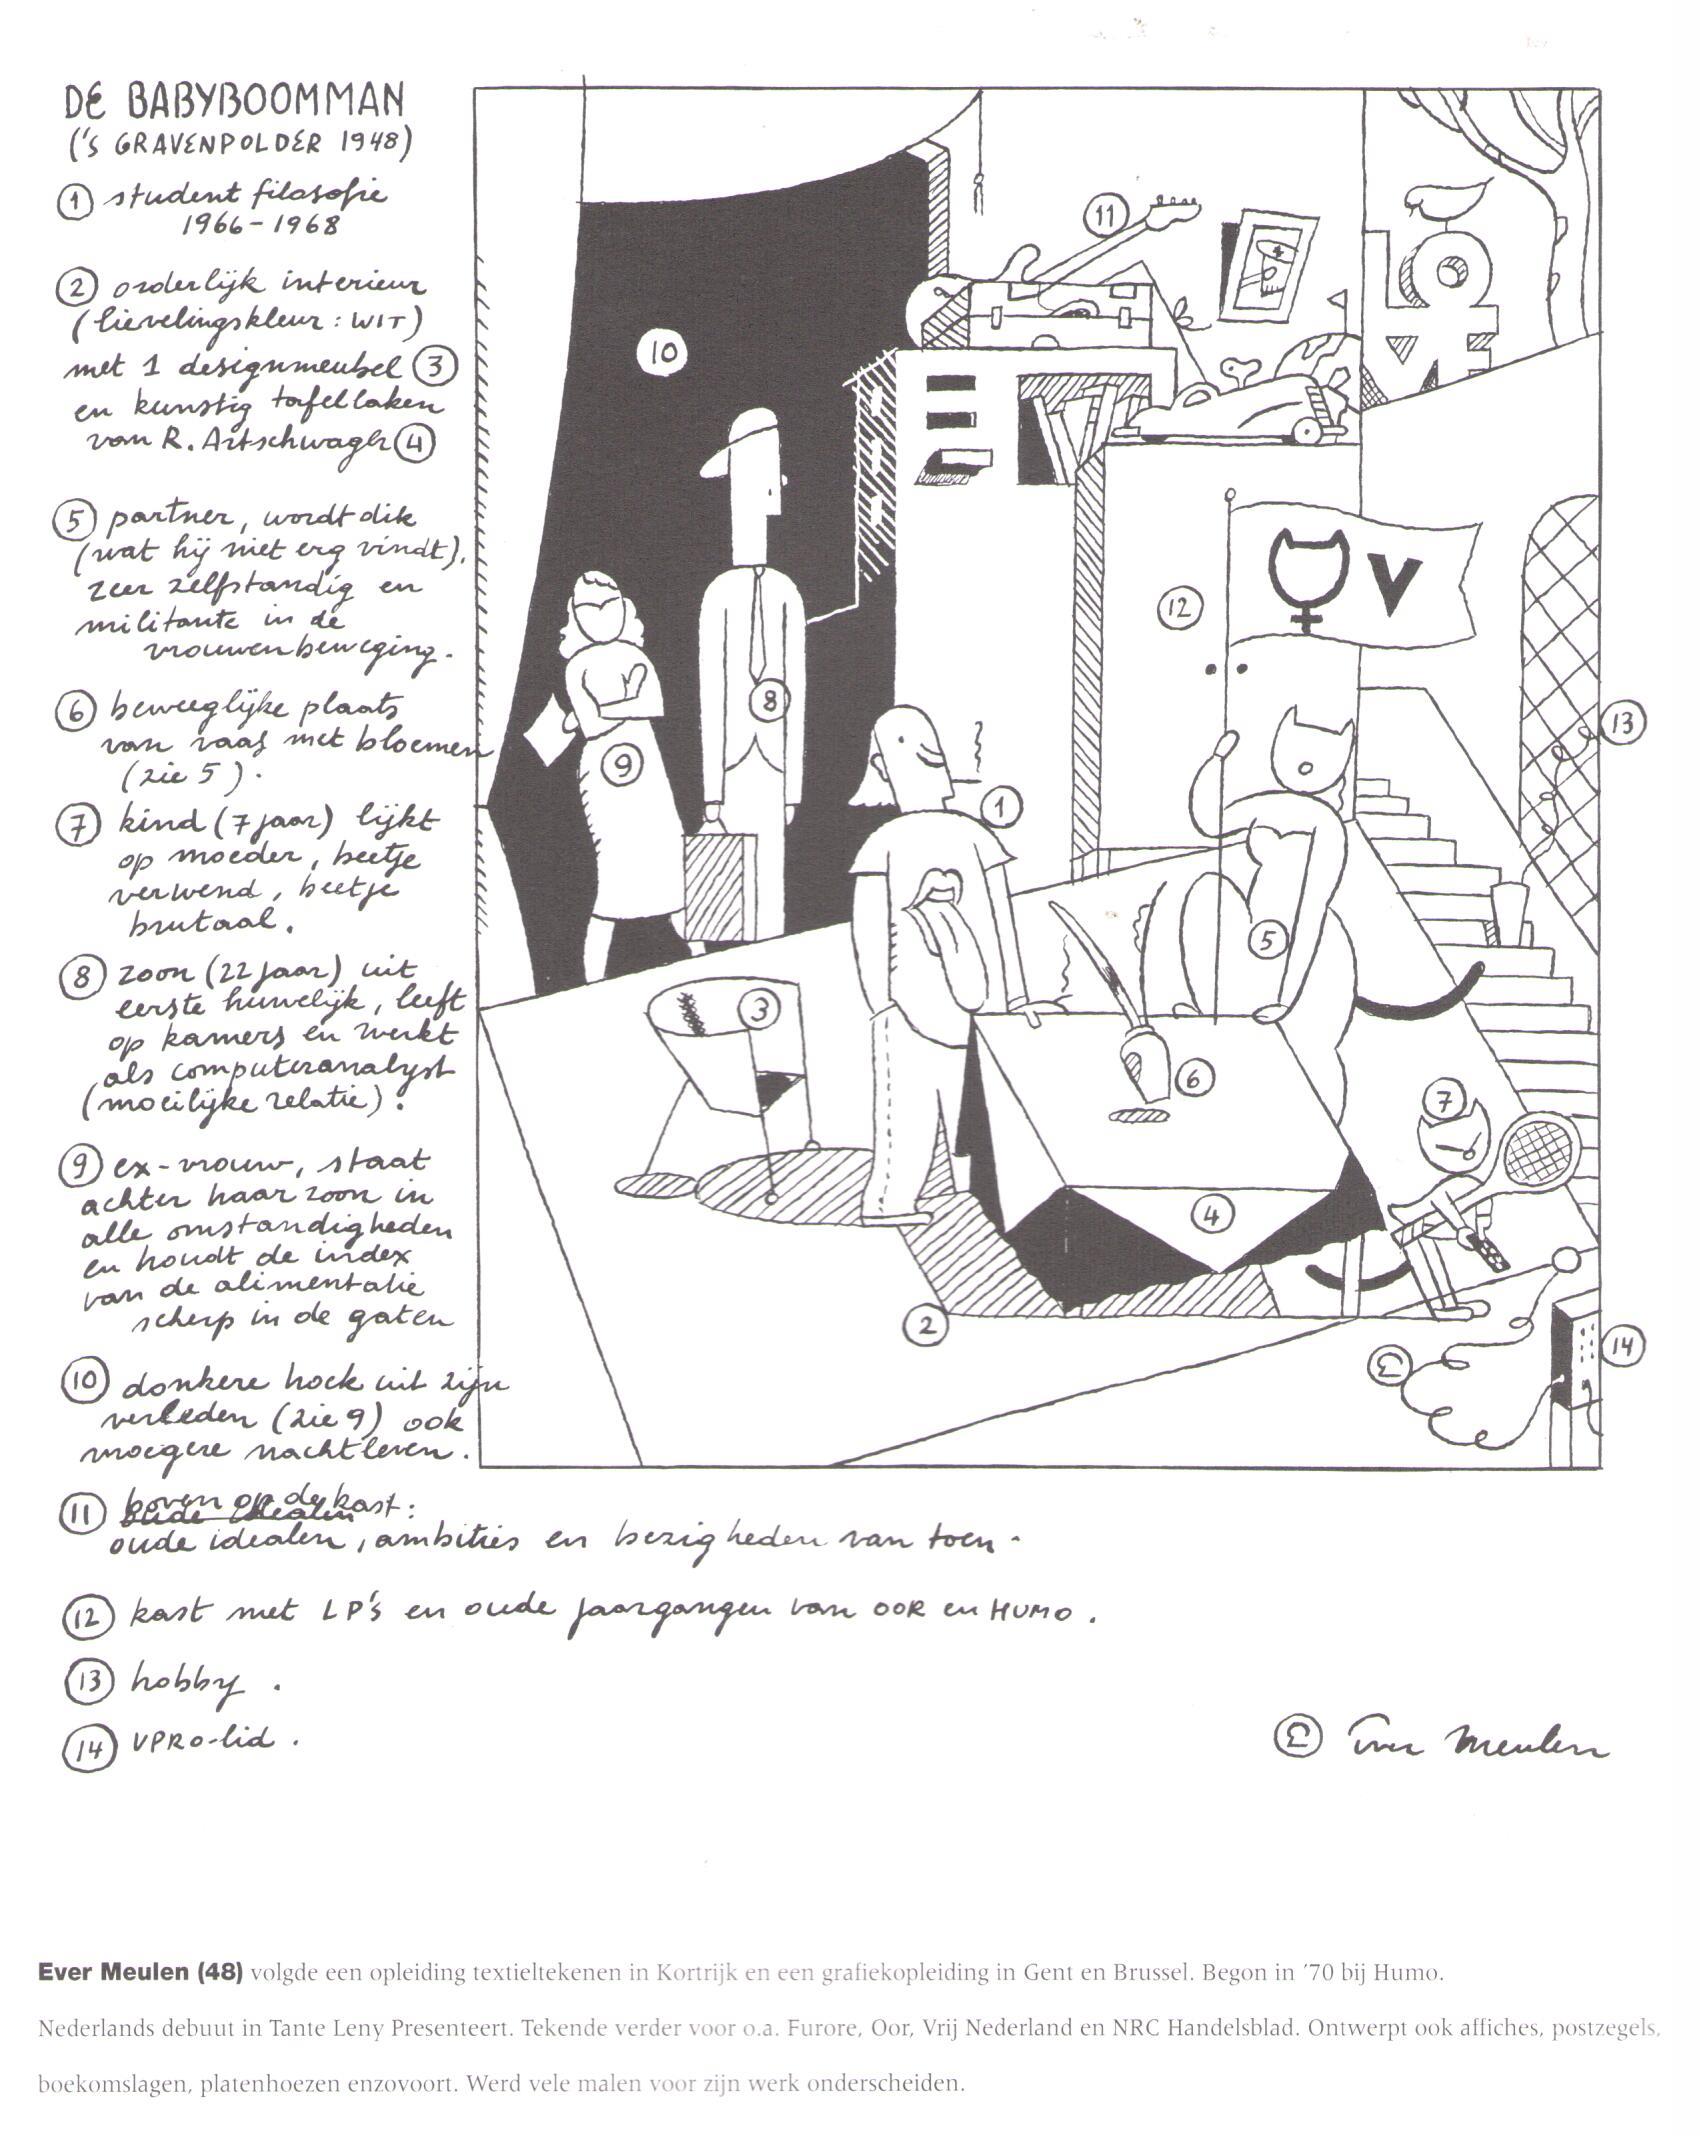 DE BABYBOOMMAN
('S GRAVENPOLDER 1948)
① student filosofie
1966-1968
② orderlijk interieur
(lievelingskleur: WIT)
met 1 designmeubel ③
en kunstig tafellaken
van R. Artschwager ④
⑤ partner, wordt dik
(wat hij niet erg vindt).
zeer zelfstandig en
militante in de
vrouwenbeweging.
⑥ beweeglijke plaats
van vaas met bloemen
(zie 5).
⑦ kind (7 jaar) lijkt
op moeder, beetje
verwend, beetje
brutaal.
⑧ zoon (22 jaar) uit
eerste huwelijk, leeft
op kamers en werkt
als computeranalyst
(moeilijke relatie).
⑨ ex-vrouw, staat
achter haar zoon in
alle omstandigheden
en houdt de index
van de alimentatie
scherp in de gaten
⑩ donkere hoek uit zijn
verleden (zie 9) ook
moegere nachtleven.
⑪ boven op de kast:
oude idealen
oude idealen, ambities en bezigheden van toen.
⑫ kast met LP's en oude jaargangen van OOR en HUMO.
⑬ hobby.
⑭ VPRO-lid.
⑩
⑪
LOVE
V
⑫
⑬
⑧
⑨
①
⑤
③
⑥
⑦
④
②
⑭
Ⓔ
Ⓔ Ever Meulen
Ever Meulen (48) volgde een opleiding textieltekenen in Kortrijk en een grafiekopleiding in Gent en Brussel. Begon in '70 bij Humo.
Nederlands debuut in Tante Leny Presenteert. Tekende verder voor o.a. Furore, Oor, Vrij Nederland en NRC Handelsblad. Ontwerpt ook affiches, postzegels,
boekomslagen, platenhoezen enzovoort. Werd vele malen voor zijn werk onderscheiden.